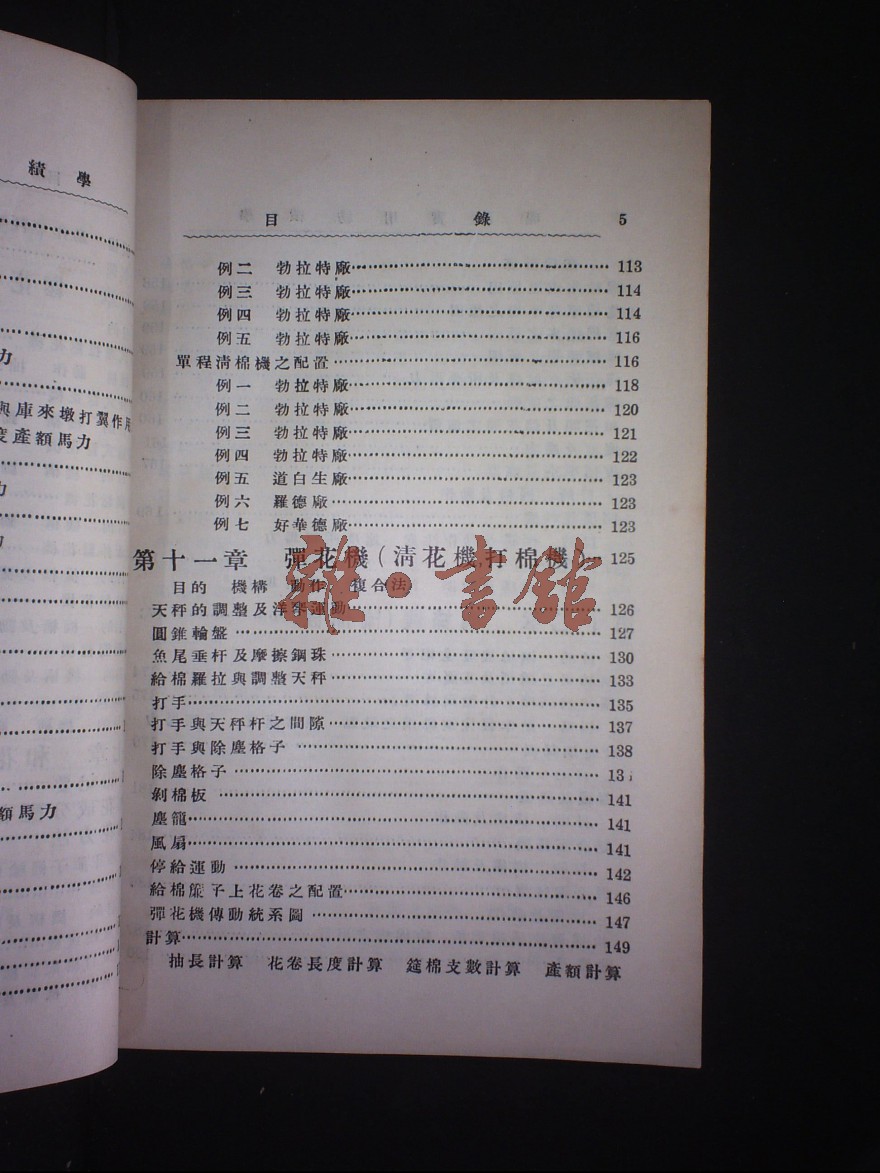 績學
力
與庫來墩打翼作用
度產額馬力
力
力
額馬力
目錄 5
例二 勃拉特廠 113
例三 勃拉特廠 114
例四 勃拉特廠 114
例五 勃拉特廠 116
單程淸棉機之配置 116
例一 勃拉特廠 118
例二 勃拉特廠 120
例三 勃拉特廠 121
例四 勃拉特廠 122
例五 道白生廠 123
例六 羅德廠 123
例七 好華德廠 123
第十一章 彈花機(淸花機,打棉機) 125
目的 機構 動作 複合法
天秤的調整及洋琴運動 126
圓錐輪盤 127
魚尾垂杆及摩擦鋼珠 130
給棉羅拉與調整天秤 133
打手 135
打手與天秤杆之間隙 137
打手與除塵格子 138
除塵格子 13
剝棉板 141
塵籠 141
風扇 141
停給運動 142
給棉簾子上花卷之配置 146
彈花機傳動統系圖 147
計算 149
抽長計算 花卷長度計算 筵棉支數計算 產額計算
雜·書館